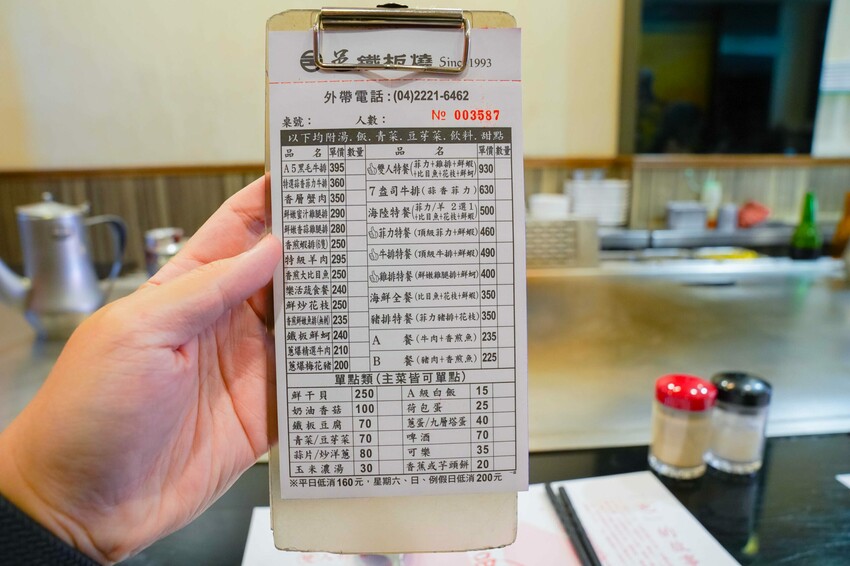 呂鐵板燒 Since 1993
外帶電話:(04)2221-6462
桌號: 人數: № 003587
以下均附湯.飯.青菜.豆芽菜.飲料.甜點
品 名 單價 數量 品 名 單價 數量
A5黑毛牛排 395
特選蒜香菲力牛排 360
香層蟹肉 350
鮮嫩蜜汁雞腿排 290
鮮嫩香蒜雞腿排 280
香煎蝦排(6隻) 250
特級羊肉 295
香煎大比目魚 250
樂活蔬食餐 240
鮮炒花枝 250
香煎鮮嫩魚排(無刺) 235
鐵板鮮蚵 240
蔥爆精選牛肉 210
蔥爆梅花豬 200
雙人特餐(菲力+雞排+鮮蝦+比目魚+花枝+鮮蚵) 930
7盎司牛排(蒜香菲力) 630
海陸特餐(菲力/羊 2選1+比目魚+花枝+鮮蝦) 500
菲力特餐(頂級菲力+鮮蝦) 460
牛排特餐(頂級牛排+鮮蝦) 490
雞排特餐(鮮嫩雞腿排+鮮蚵) 400
海鮮全餐(比目魚+花枝+鮮蝦) 350
豬排特餐(菲力豬排+花枝) 350
A 餐(牛肉+香煎魚) 235
B 餐(豬肉+香煎魚) 225
單點類(主菜皆可單點)
鮮干貝 250
奶油香菇 100
鐵板豆腐 70
青菜/豆芽菜 70
蒜片/炒洋蔥 80
玉米濃湯 30
A級白飯 15
荷包蛋 25
蔥蛋/九層塔蛋 40
啤酒 70
可樂 35
香蕉或芋頭餅 20
※平日低消160元,星期六、日、例假日低消200元